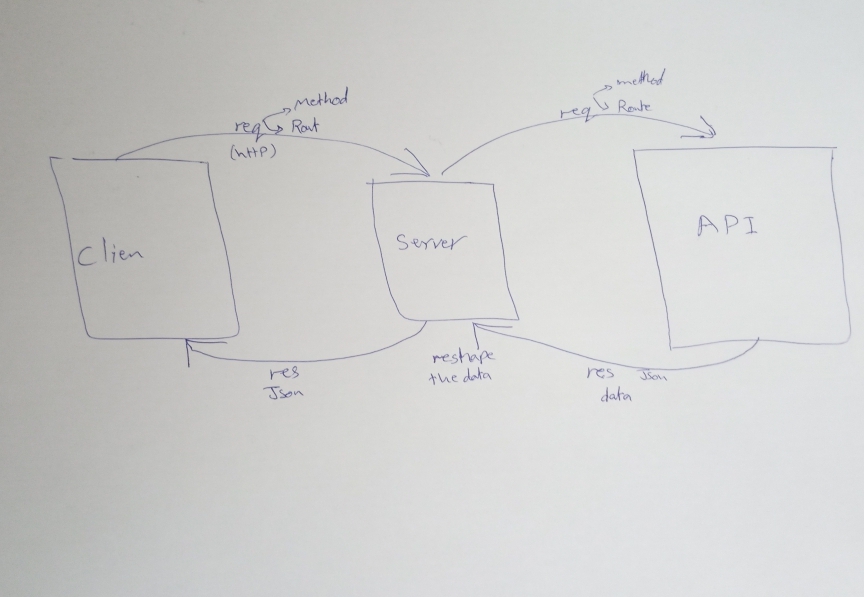 Method
req
Rout
(httP)
method
req
Route
Clien
Server
API
res
Json
reshape
the data
res Json
data